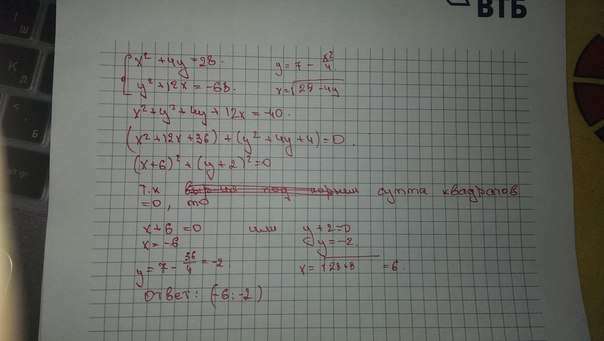 ВТБ
x² + 4y = 28. y = 7 - x²/4
y² + 12x = -68. x = √28 - 4y
x² + y² + 4y + 12x = -40.
(x² + 12x + 36) + (y² + 4y + 4) = 0.
(x+6)² + (y+2)² = 0
Т.к сумма квадратов
= 0, то
x + 6 = 0 или y + 2 = 0
x = -6 y = -2
y = 7 - 36/4 = -2. x = √28+8 = 6.
Ответ: (-6; -2)